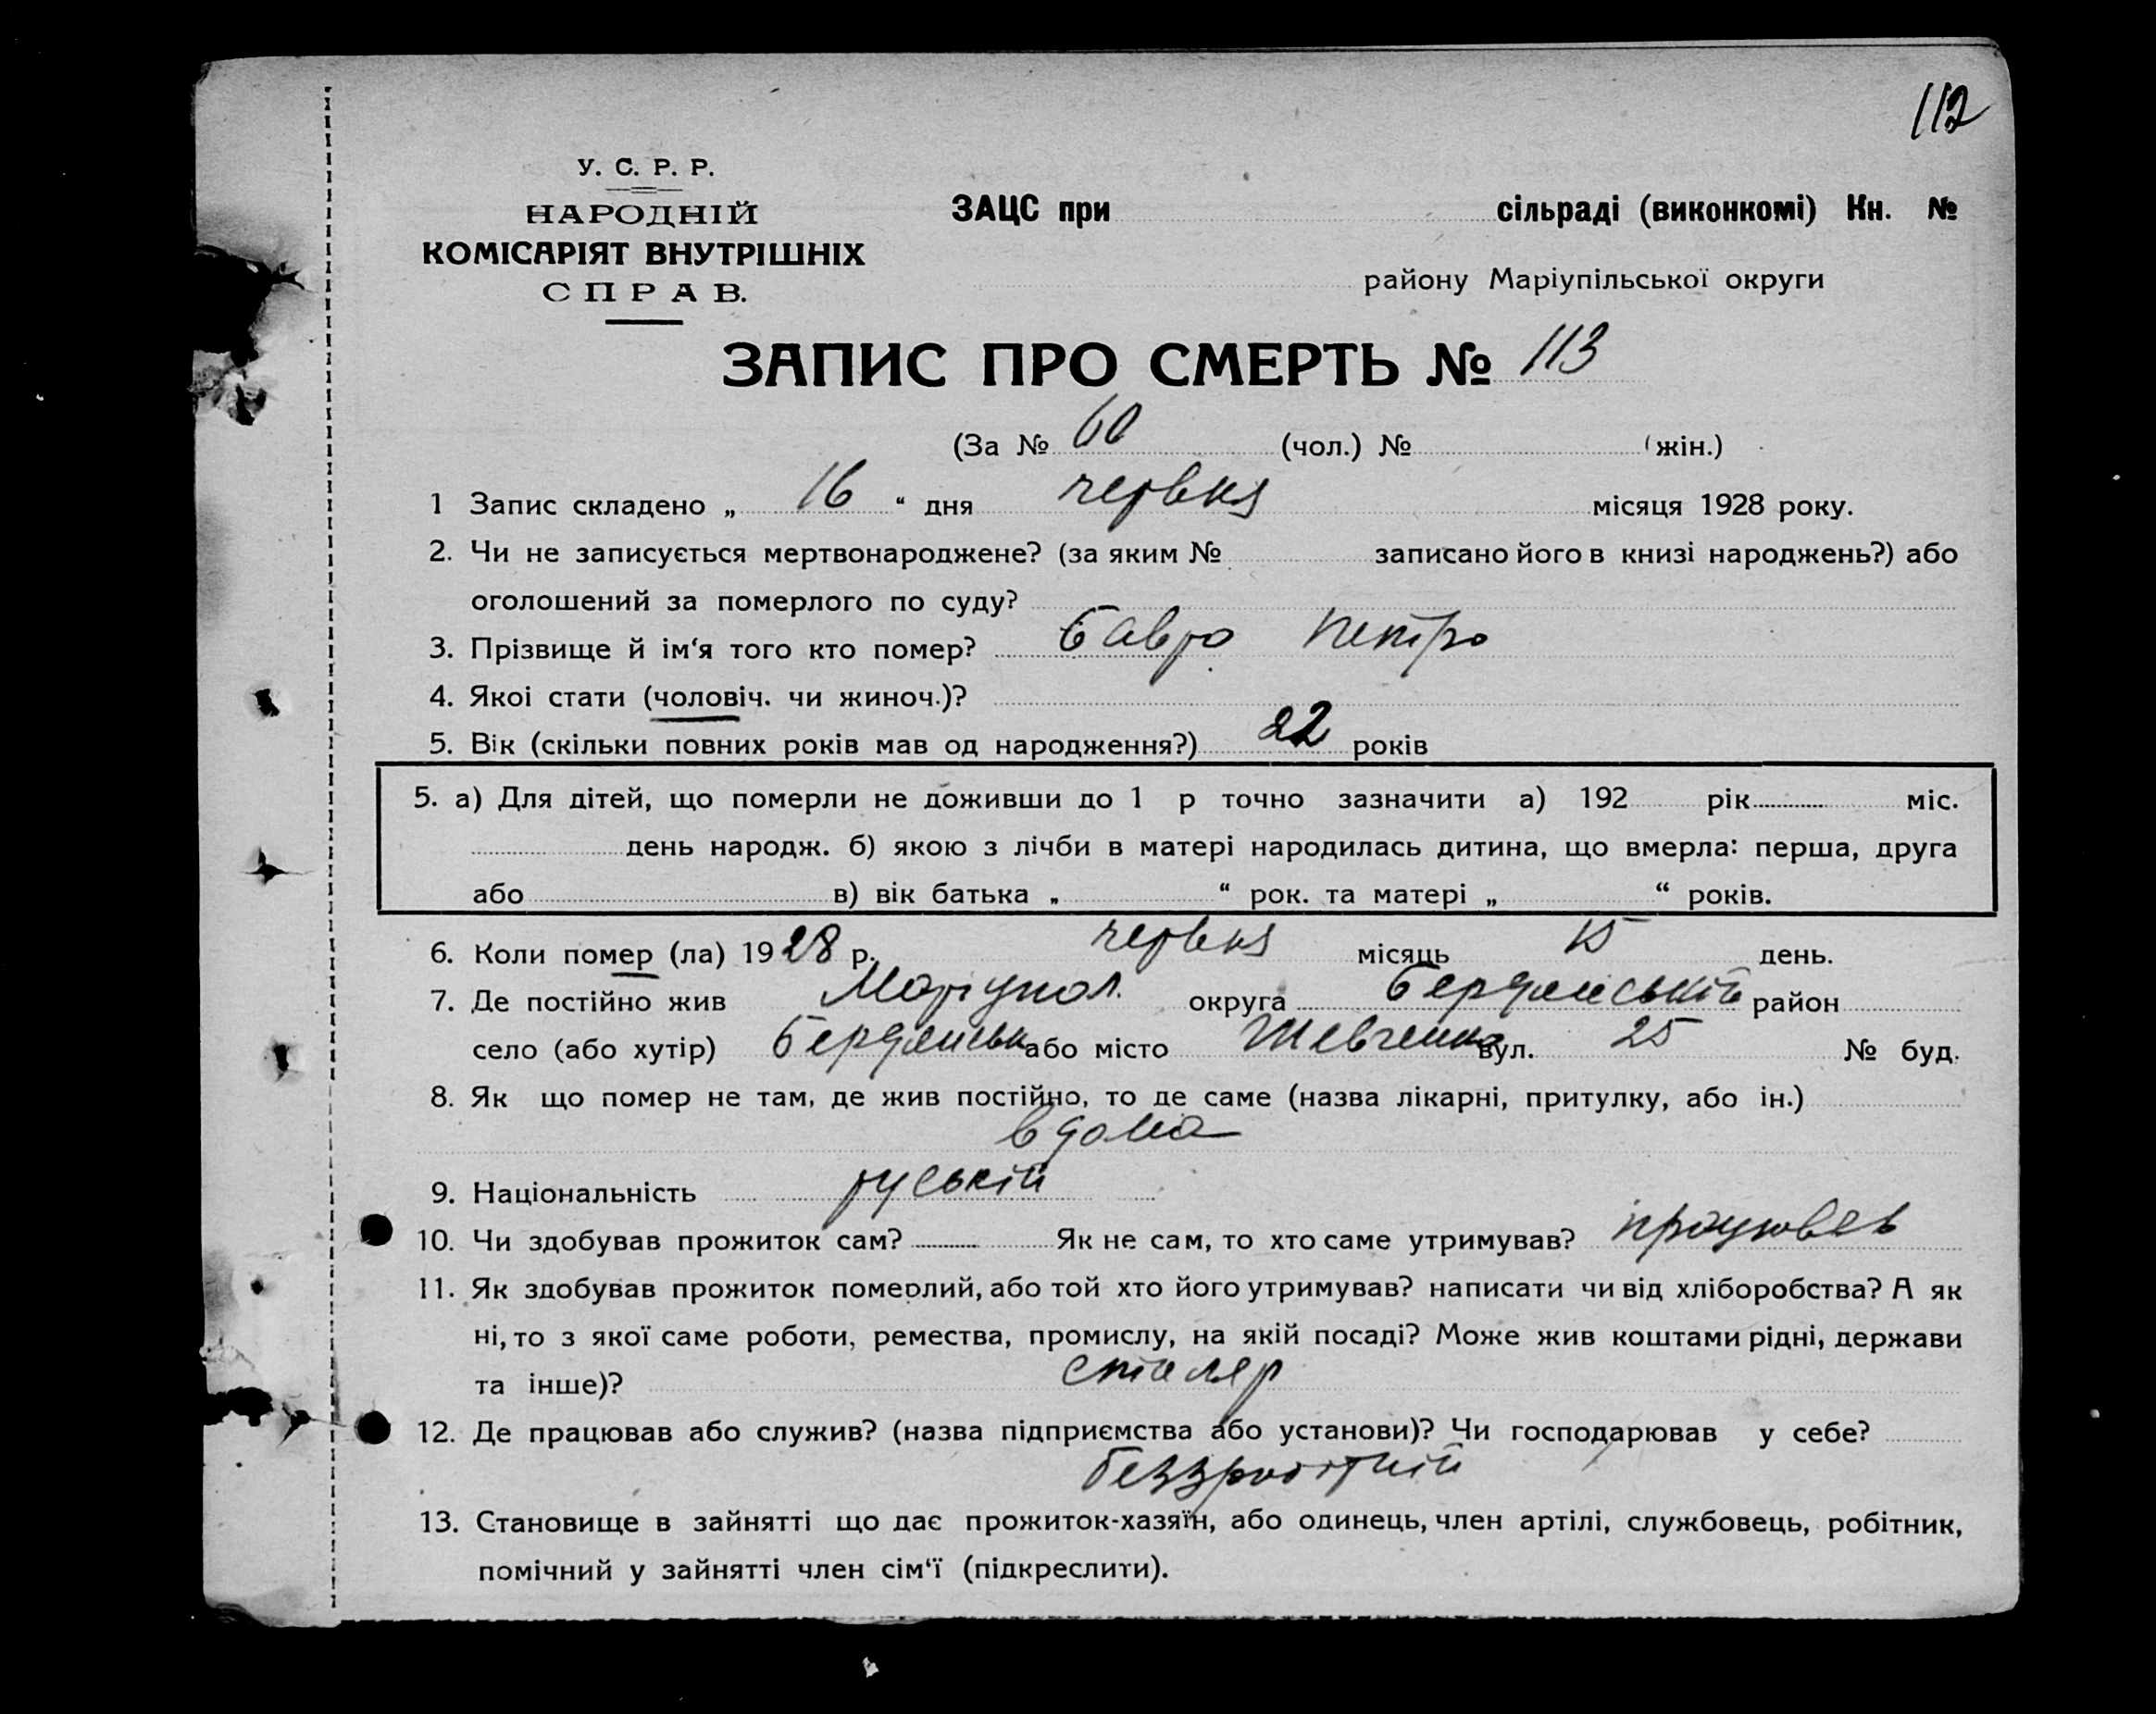 112
У. С. Р. Р.
НАРОДНІЙ
КОМІСАРІЯТ ВНУТРІШНІХ
СПРАВ.
ЗАЦС при сільраді (виконкомі) Кн. №
району Маріупільської округи
ЗАПИС ПРО СМЕРТЬ № 113
(За № 60 (чол.) № (жін.)
1 Запис складено „ 16 “ дня червня місяця 1928 року.
2. Чи не записується мертвонароджене? (за яким № записано його в книзі народжень?) або
оголошений за померлого по суду?
3. Прізвище й ім‘я того кто помер? Бавро Петро
4. Якоі стати (чоловіч. чи жиноч.)?
5. Вік (скільки повних років мав од народження?) 22 років
5. а) Для дітей, що померли не доживши до 1 р точно зазначити а) 192 рік міс.
день народж. б) якою з лічби в матері народилась дитина, що вмерла: перша, друга
або в) вік батька „ “ рок. та матері „ “ років.
6. Коли помер (ла) 1928 р. червня місяць 15 день.
7. Де постійно жив Маріупол. округа Бердянській район
село (або хутір) Бердянськ або місто Шевченко вул. 25 № буд.
8. Як що помер не там, де жив постійно, то де саме (назва лікарні, притулку, або ін.)
вдома
9. Національність руській
10. Чи здобував прожиток сам? Як не сам, то хто саме утримував? працював
11. Як здобував прожиток померлий, або той хто його утримував? написати чи від хліборобства? А як
ні, то з якої саме роботи, ремества, промислу, на якій посаді? Може жив коштами рідні, держави
та інше)? столяр
12. Де працював або служив? (назва підприємства або установи)? Чи господарював у себе?
13. Становище в зайнятті що дає прожиток-хазяїн, або одинець, член артілі, службовець, робітник,
помічний у зайнятті член сім‘ї (підкреслити).